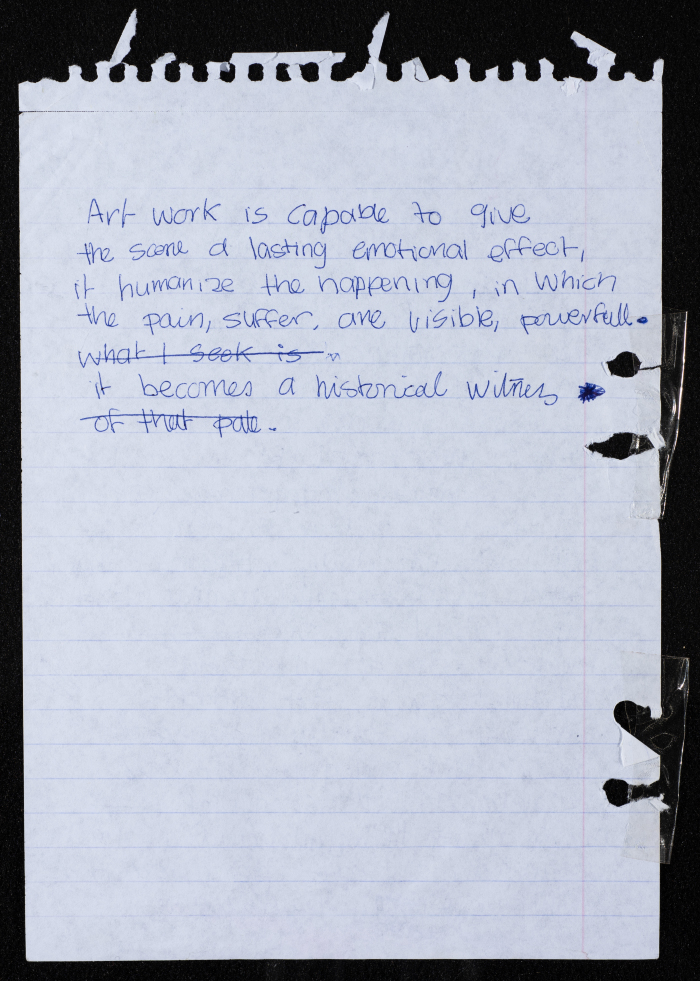 Art work is capable to give
the scene a lasting emotional effect,
it humanize the happening, in which
the pain, suffer, are visible, powerfull.
what I seek is
it becomes a historical witness
of that